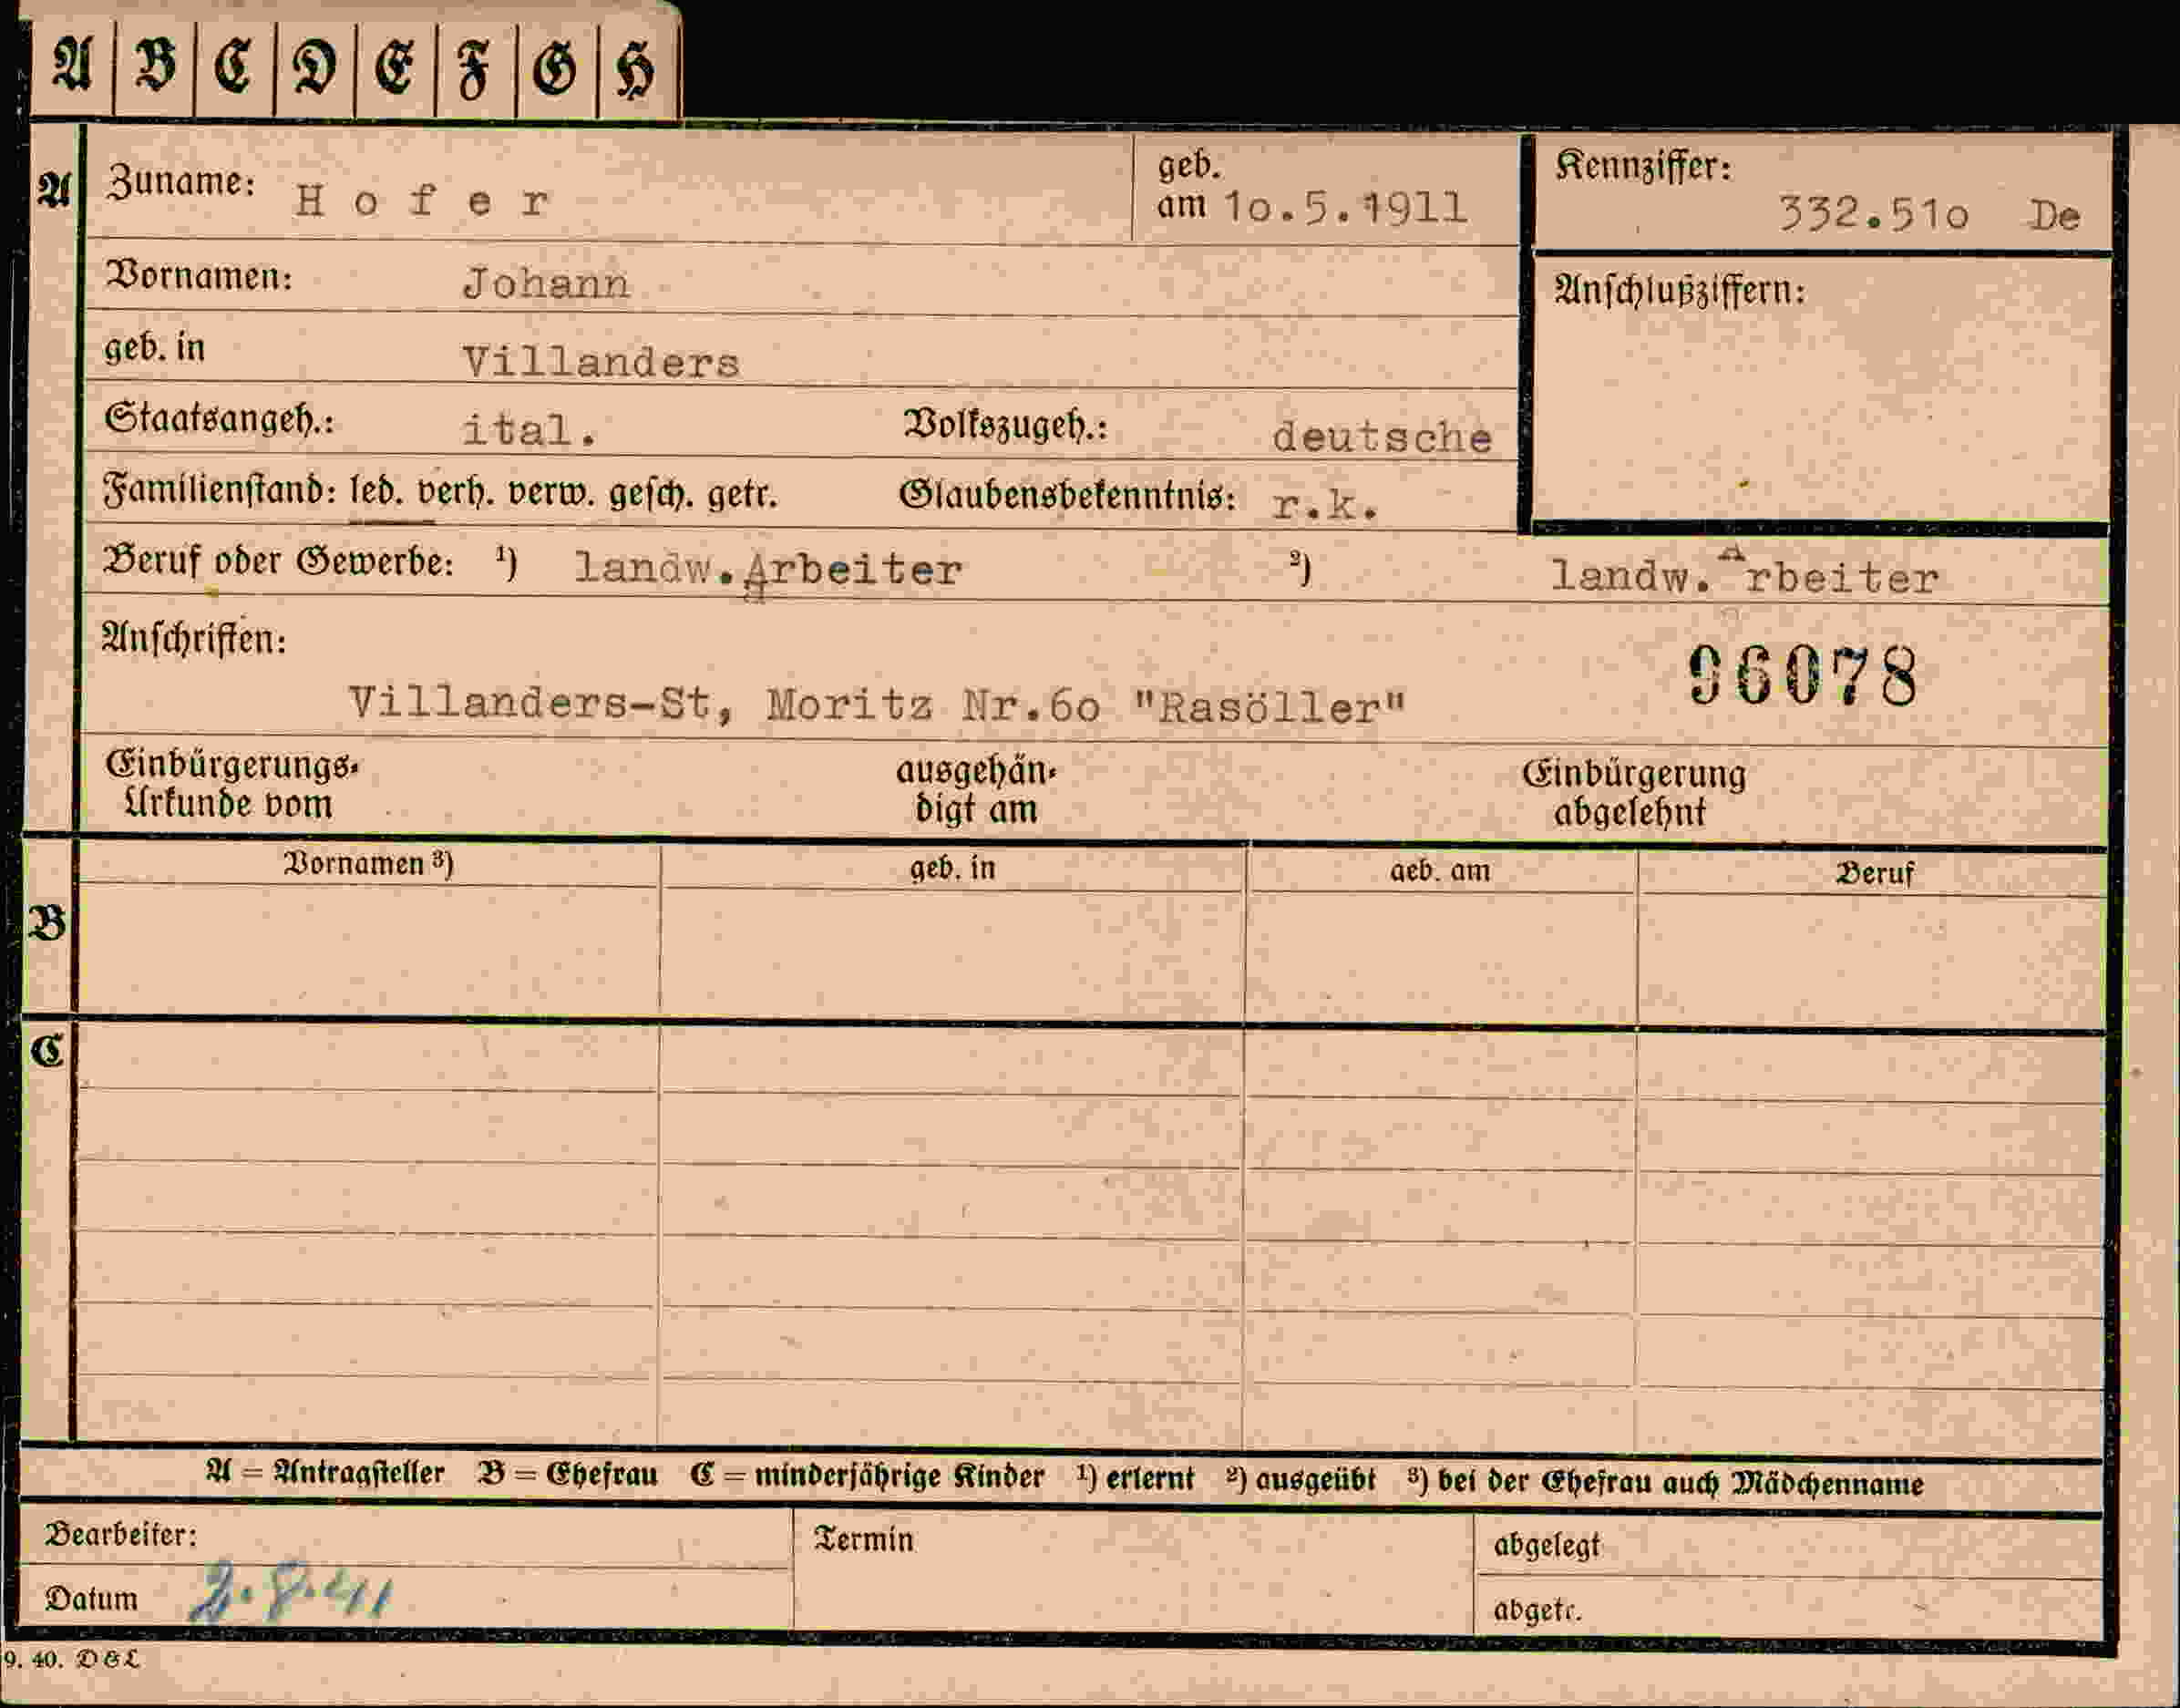 A B C D E F G H
A Zuname: Hofer geb. am 1o.5.1911 Kennziffer: 332.51o De
Vornamen: Johann Anschlußziffern:
geb. in Villanders
Staatsangeh.: ital. Volkszugeh.: deutsche
Familienstand: led. verh. verw. gesch. getr. Glaubensbekenntnis: r.k.
Beruf oder Gewerbe: ¹) landw.Arbeiter ²) landw.Arbeiter
Anschriften:
96078
Villanders-St, Moritz Nr.6o "Rasöller"
Einbürgerungs- ausgehän- Einbürgerung
Urkunde vom digt am abgelehnt
Vornamen ³) geb. in geb. am Beruf
B
C
A = Antragsteller B = Ehefrau C = minderjährige Kinder ¹) erlernt ²) ausgeübt ³) bei der Ehefrau auch Mädchenname
Bearbeiter: Termin abgelegt
Datum 2.8.41 abgetr.
9. 40. D&L